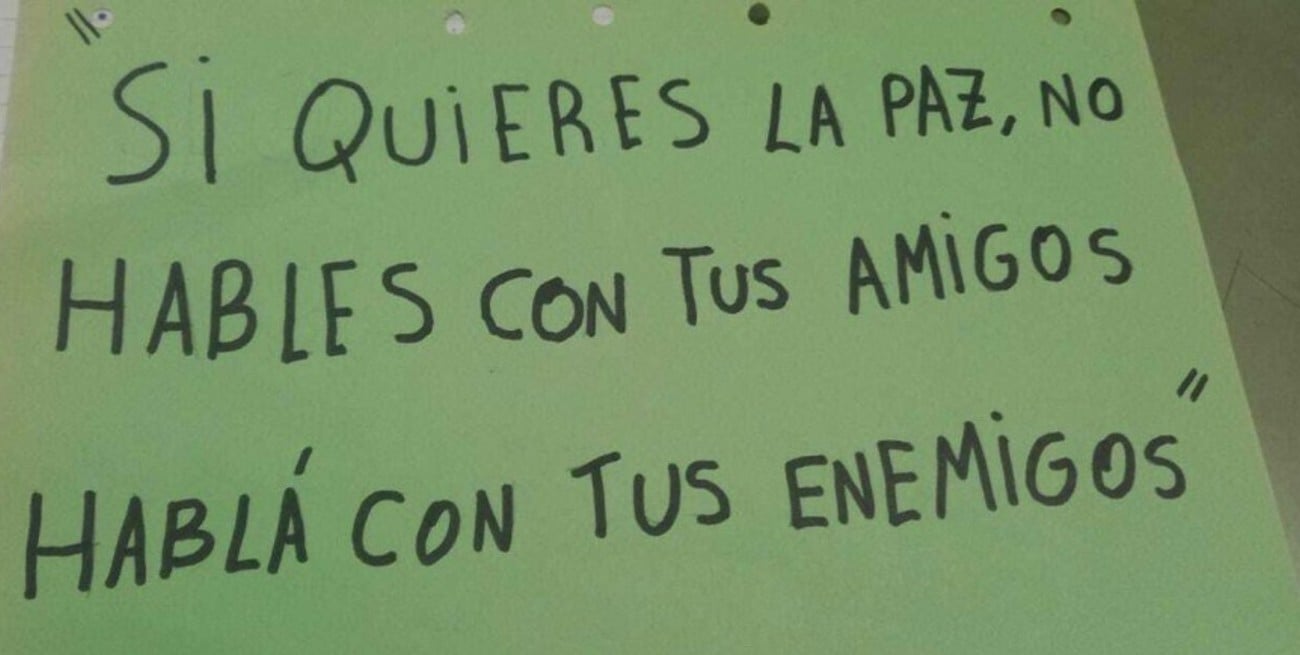 "Si QUiERES LA PAZ, NO
HABLES CON TUS AMiGOS
HABLÁ CON TUS ENEMiGOS"